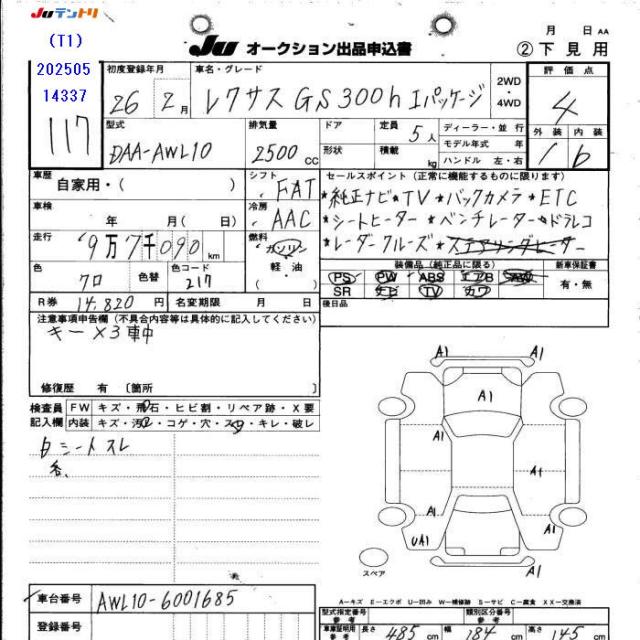 Juテントリ
(T1)
202505
14337
117
JU オークション出品申込書
月 日 AA
②下見用
初度登録年月
26 2月
車名・グレード
レクサス GS300h Iパッケージ
2WD
・
4WD
評価点
4
型式
DAA-AWL10
排気量
2500 CC
ドア
形状
定員 5人
積載 kg
ディーラー・並行
モデル年式 年
ハンドル 左・右
外装 内装
車歴
自家用・( )
シフト
FAT
セールスポイント(正常に機能するものに限ります)
*純正ナビ*TV*バックカメラ*ETC
*シートヒーター*ベンチレーター*ドラレコ
*レーダークルーズ*ステアリングヒーター
車検
年 月( )
冷房
AAC
走行
9万7千090 km
燃料
ガソリン
軽油
( )
色
クロ
色替
色コード
217
装備品(純正品に限る)
PS PW ABS エアB SAW
SR ナビ TV カワ
新車保証書
有・無
R券 14,820円 名変期限 月 日
後日品
注意事項申告欄(不具合内容等は具体的に記入してください)
キー×3 車中
修復歴 有 〔箇所
検査員
記入欄
FW キズ・飛石・ヒビ割・リペア跡・X要
内装 キズ・汚れ・コゲ・穴・スレ・キレ・破レ
シートスレ
A1 A1
A1
A1 A1
A1 A1
UA1 A1
A1
スペア
A─キズ E─エクボ U─凹み W─補修跡 S─サビ C─腐食 XX─交換済
車台番号 AWL10-6001685
登録番号
型式指定番号
類別区分番号
車庫証明用
参考
長さ 485 cm
幅 184 cm
高さ 145 cm